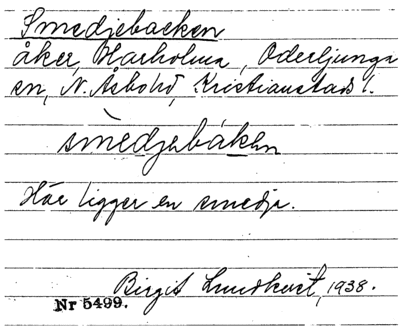 Smedjebacken
åker, Harholma, Oderljunga
sn, N. Åsbo hd, Kristianstads l.
smedjebákƏn
Här ligger en smedja.
Birgit Lundkvist, 1938.
Nr 5499.